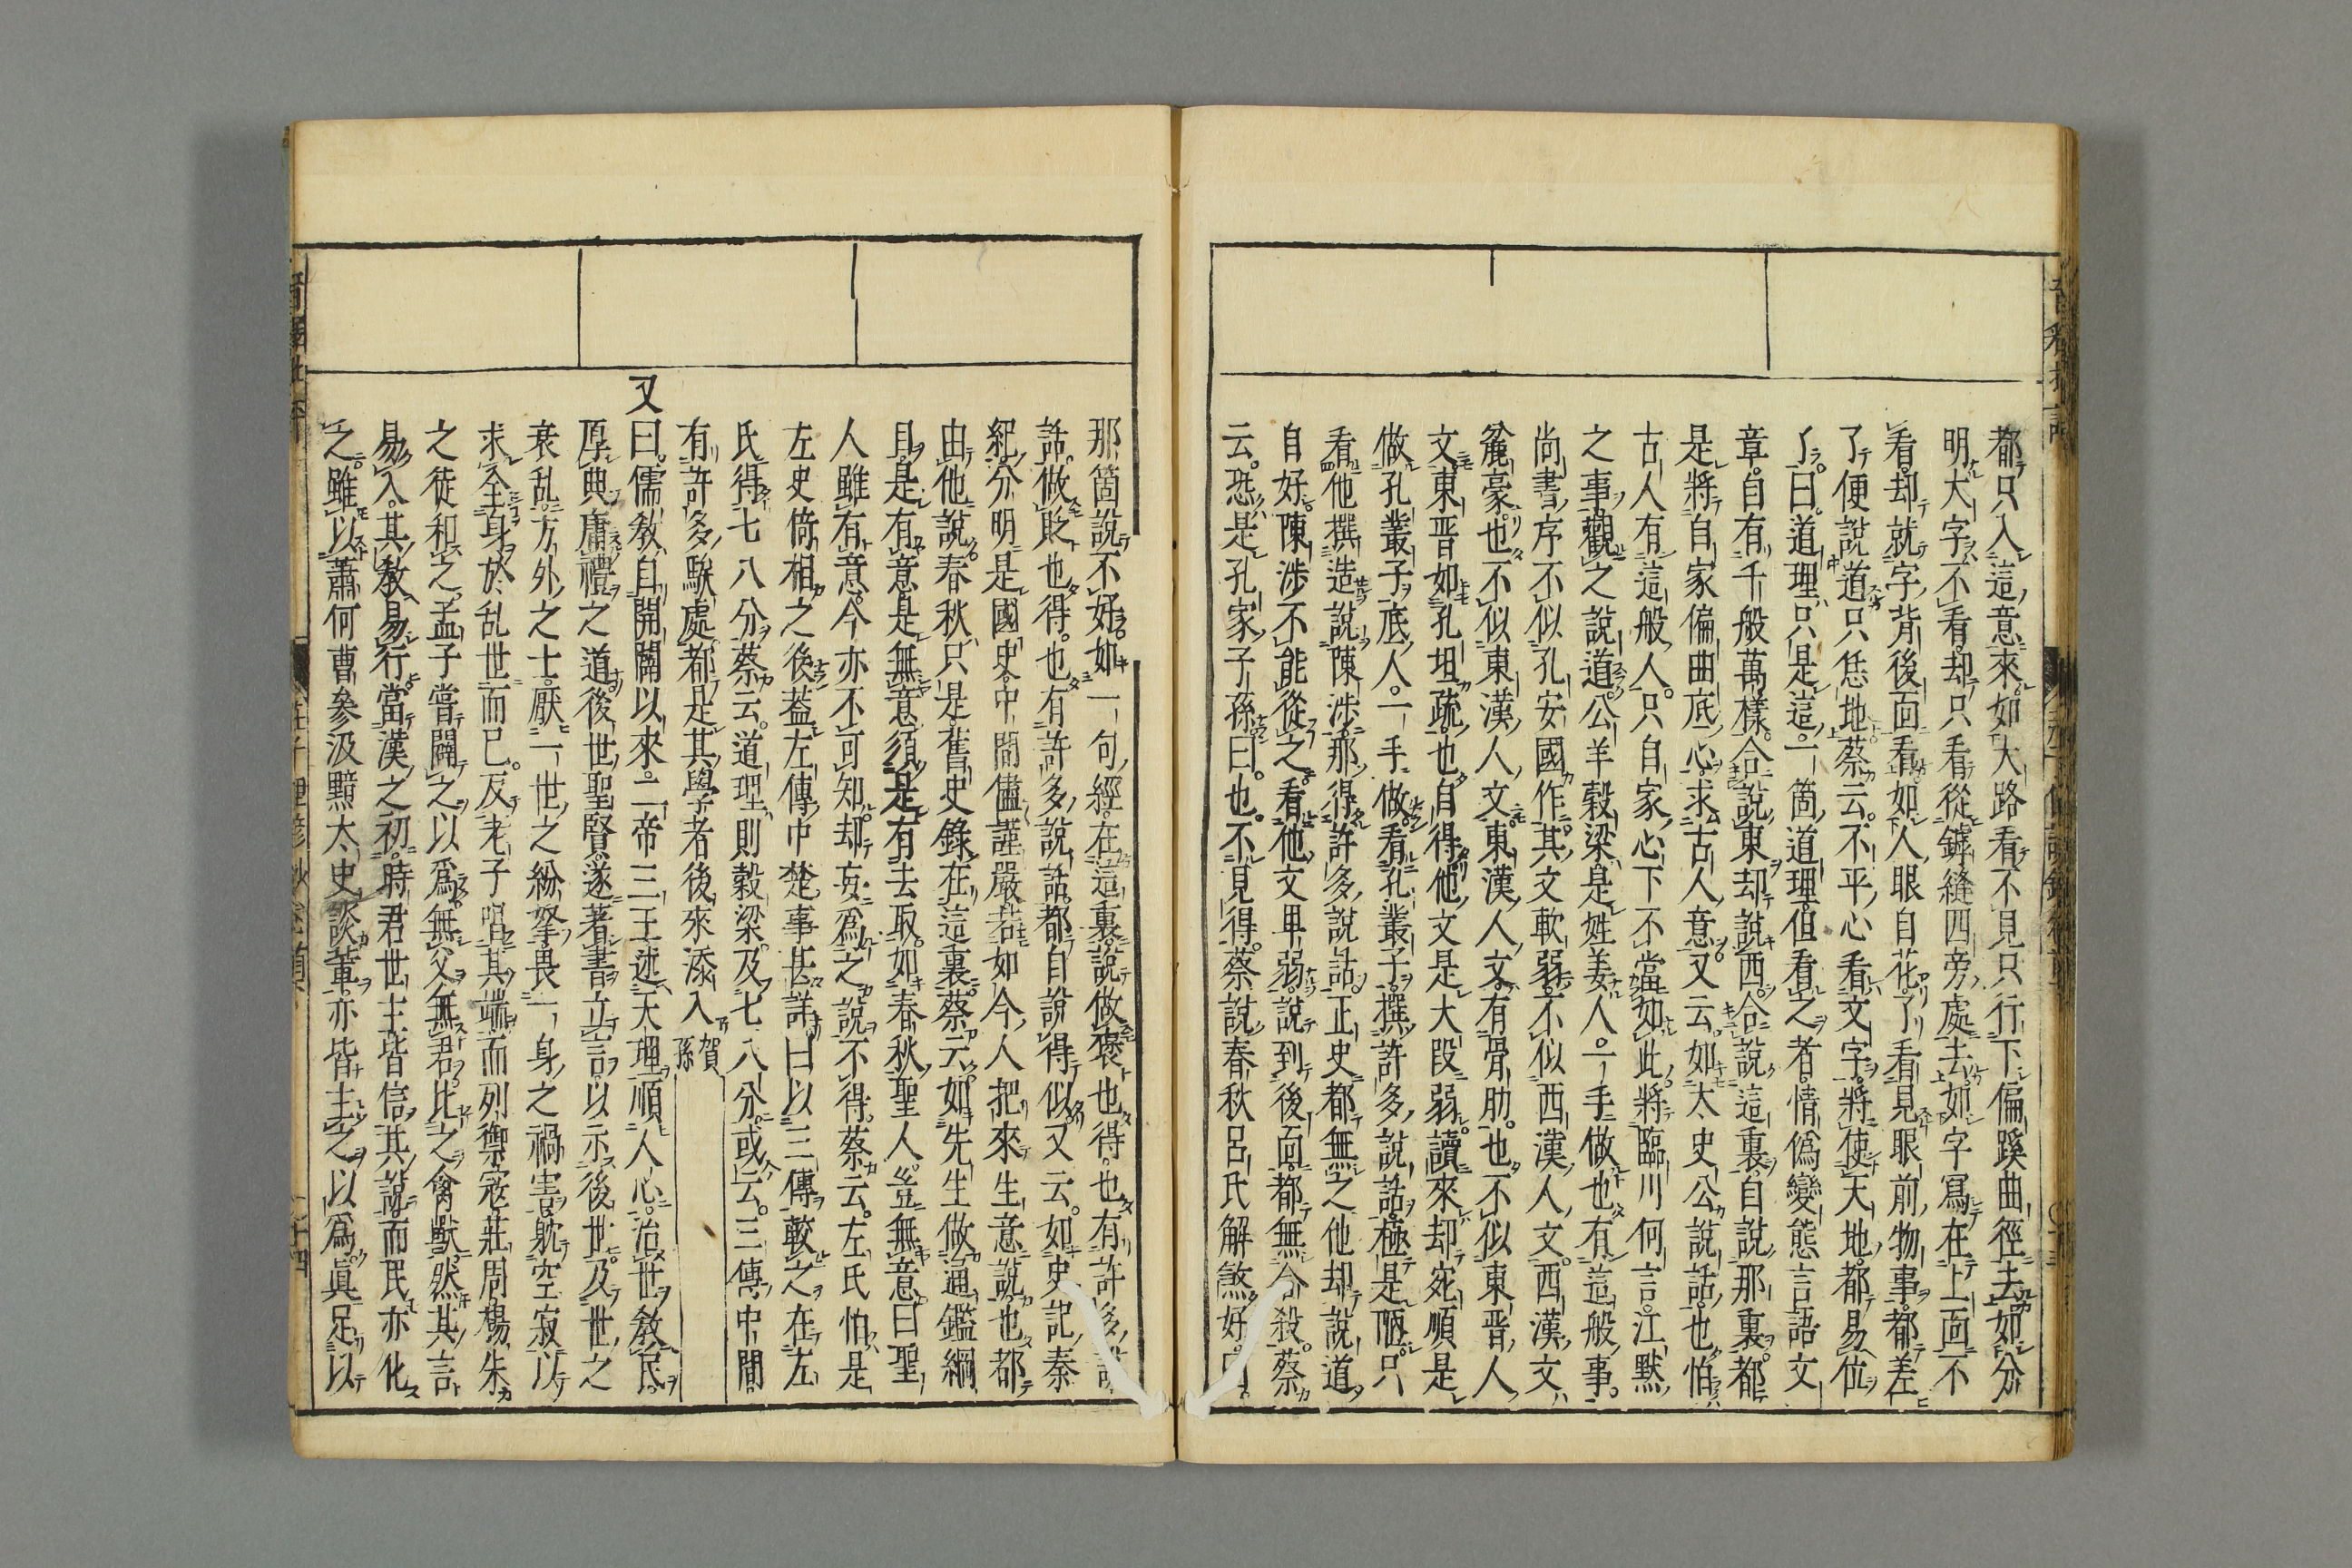 都只入這意來如大路看不見只行下偏蹊曲徑去如分
明大字不看却只看從鏬縫四旁處去如字冩在上面不
看却就字背後面看如人眼自花了看見眼前物事都差
了便說道只恁地蔡云不平心看文字將使天地都易位
了曰道理只是這一箇道理但看之者情僞變態言語文
章自有千般萬樣合說東却說西合說這裏自說那裏都
是將自家偏曲底心求古人意又云如太史公說話也怕
古人有這般人只自家心下不當如此將臨川何言江默
之事觀之說道公羊穀梁是姓姜人一手做也有這般事
尚書序不似孔安國作其文軟弱不似西漢人文西漢文
麄豪也不似東漢人文東漢人文有骨肋也不似東晋人
文東晋如孔坦疏也自得他文是大段弱讀來却宛順是
做孔叢子底人一手做看孔叢子撰許多說話極是陋只
看他撰造說陳涉那得許多說話正史都無之他却說道
自好陳涉不能從之看他文卑弱說到後面都無合殺蔡
云恐是孔家子孫曰也不見得蔡說春秋呂氏解煞好曰
那箇說不好如一句經在這裏說做褒也得也有許多說
話做貶也得也有許多說話都自說得似又云如史記秦
紀分明是國史中間儘謹嚴若如今人把來生意說也都
由他說春秋只是舊史錄在這裏蔡云如先生做通鑑綱
目是有意是無意須是有去取如春秋聖人豈無意曰聖
人雖有意今亦不可知却妄爲之說不得蔡云左氏怕是
左史倚相之後蓋左傳中楚事甚詳曰以三傳較之在左
氏得七八分蔡云道理則穀梁及七八分或云三傳中間
有許多騃處都是其學者後來添入 賀孫
又 曰儒教自開闢以來二帝三王述天理順人心治世敎民
厚典庸禮之道後世聖賢遂著書立言以示後世及世之
衰乱方外之士厭一世之紛拏畏一身之禍害躭空寂以
求全身於乱世而已及老子唱其端而列禦寇莊周楊朱
之徒和之孟子嘗闢之以爲無父無君比之禽獸然其言
易入其敎易行當漢之初時君世主皆信其說而民亦化
之雖以蕭何曹參汲黯太史談輩亦皆主之以爲眞足以